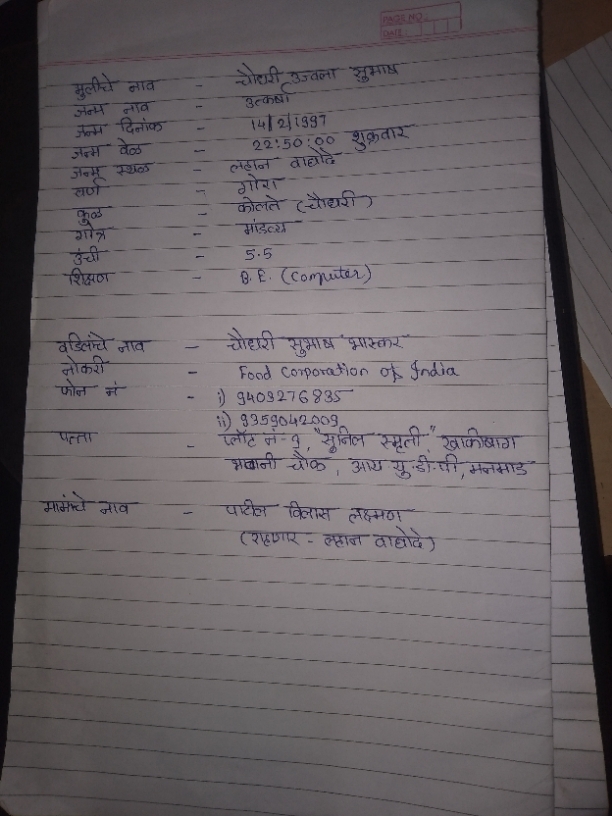 PAGE NO.:
DATE:
मुलीचे नाव - चौधरी उज्वला सुभाष
जन्म नाव - उत्कर्षा
जन्म दिनांक - 14/2/1997
जन्म वेळ - 22:50:00 शुक्रवार
जन्म स्थळ - लहान वाघोदे
वर्ण - गोरा
कुळ - कोलते (चौधरी)
गोत्र - मांडल्य
उंची - 5.5
शिक्षण - B.E. (Computer)
वडिलांचे नाव - चौधरी सुभाष भास्कर
नोकरी - Food Corporation of India
फोन नं - i) 9403276835
ii) 9359042009
पत्ता - प्लॉट नं-9, "सुनिल स्मृती" खाकीबाग
भवानी चौक, आय.यु.डी.पी, मनमाड
मामांचे नाव - पाटील विलास लक्ष्मण
(राहणार - लहान वाघोदे)